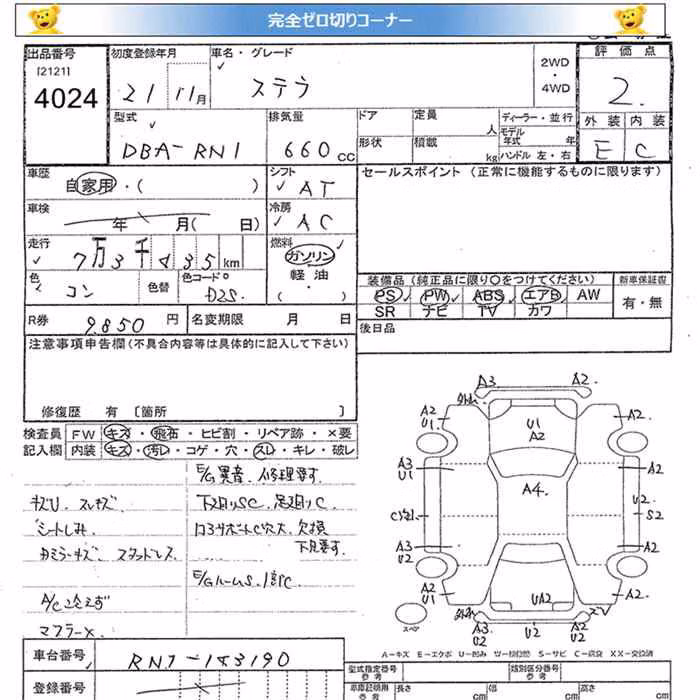 完全ゼロ切りコーナー
出品番号 初度登録年月 車名・グレード 2WD ・ 4WD 評価点
[2121]
4024 21 11月 ステラ 2.
型式 排気量 ドア 定員 人 ディーラー・並行 外装 内装
DBA-RN1 660 CC 形状 積載 kg モデル年式 年 ハンドル 左・右 E C
車歴 シフト セールスポイント (正常に機能するものに限ります)
自家用・( ) AT
車検 冷房
年 月( 日) AC
走行 燃料
7万3千 km ガソリン
色 色替 色コードNo 軽油
コン D2S ・( )
装備品 (純正品に限り○をつけてください) 新車保証書
PS PW ABS エアB AW 有・無
SR ナビ TV カワ
R券 9.850 円 名変期限 月 日 後日品
注意事項申告欄(不具合内容等は具体的に記入して下さい)
修復歴 有 [箇所 ]
検査員 FW キズ・飛石・ヒビ割・リペア跡・×要
記入欄 内装 キズ・汚レ・コゲ・穴・スレ・キレ・破レ
E/G異音、修理要す
キズU スレキズ 下廻りSC、足廻りC
シートしみ ロアサポートC穴大 欠損
カミラーキズ スタッドレス 下見要す
E/GルームS.
A/C冷えず
マフラーX
A3 A2
A2 U1
U1 A2
A2
A3 U1
A2
A4
U2 S2
A3 U2
A2
A2 U1
UA2
A2
A3 U2
U2
A2 U2
スペア
A-キズ E-エクボ U-凹み W-補修跡 S-サビ C-腐食 XX-交換済
車台番号 型式指定番号 類別区分番号
参考 参考
登録番号 車庫証明用 参考 長さ cm 幅 cm 高さ cm